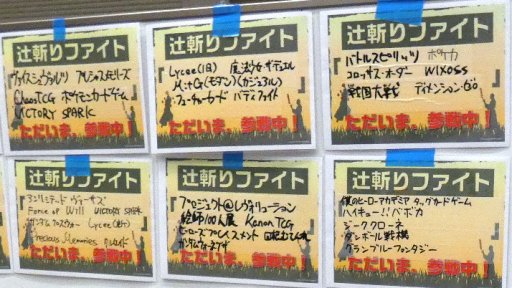 辻斬りファイト
ヴァイスシュヴァルツ プレシャスメモリーズ
ChaosTCG ポケモンカードゲーム
VICTORY SPARK
ただいま、参戦中！
辻斬りファイト
Lycee(旧)
MtG(モダン)(カジュアル)
フューチャーカード バディファイト
ただいま、参戦中！
辻斬りファイト
バトルスピリッツ ポケカ
コロッサス・オーダー WIXOSS
戦国大戦 ディメンション・ゼロ
ただいま、参戦中！
辻斬りファイト
アンリミテッド ヴァーサス
Force of Will VICTORY SPARK
ガンダム クロスウォー Lycee
Precious Memories
ただいま、参戦中！
辻斬りファイト
プロジェクト レヴォリューション
絵師100人展 Kanon TCG
ヒーローズ
ガンダムウォーネグザ
ただいま、参戦中！
辻斬りファイト
僕のヒーローアカデミア タッグカードゲーム
ハイキュー!!バボカ
ジーククローネ
ダンボール戦機
グランブルーファンタジー
ただいま、参戦中！